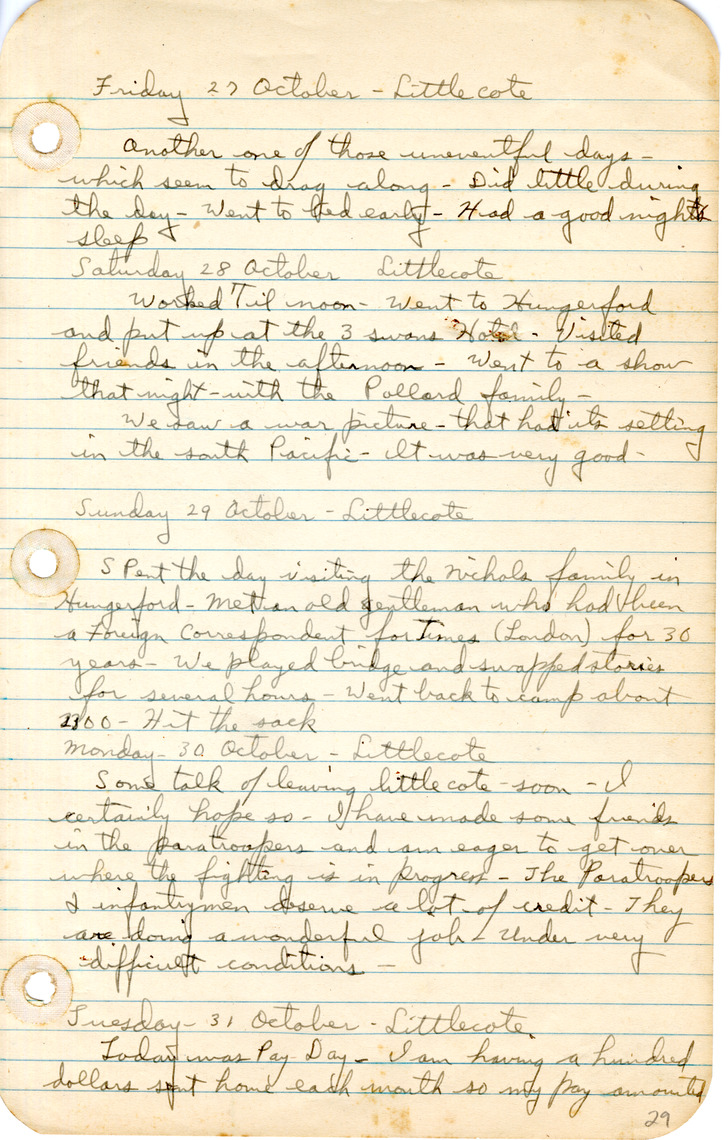 Friday 27 October - Littlecote
Another one of those uneventful days -
which seem to drag along - Did little during
the day - Went to bed early - Had a good nights
sleep
Saturday 28 October Littlecote
Worked 'Til noon - Went to Hungerford
and put up at the 3 swans Hotel - Visited
friends in the afternoon - Went to a show
that night - with the Pollard family -
We saw a war picture - that had its setting
in the south Pacific - It was very good -
Sunday 29 October - Littlecote
SPent the day visiting the Nichols family in
Hungerford - Met an old gentleman who had been
a Foreign Correspondent for Times (London) for 30
years - We played bridge and swapped stories
for several hours - Went back to camp about
2300 - Hit the sack
Monday - 30 October - Littlecote
Some talk of leaving littlecote - soon - I
certainly hope so - I have made some friends
in the paratroopers and am eager to get over
where the fighting is in progress - The Paratroopers
& infantrymen deserve a lot of credit - They
are doing a wonderful job - Under very
difficult conditions -
Tuesday - 31 October - Littlecote
Today was Pay Day - I am having a hundred
dollars sent home each month so my pay amounted
29